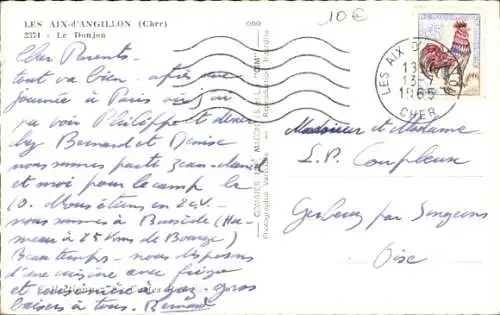 LES AIX-d'ANGILLON (Cher)
2374 - Le Donjon
10 €
LES AIX D'
13-
1965
CHER
Cher Parents
tout va bien - après une
journée à Paris où j'ai
vu voir Philippe et
chez Bernard et Denise
nous sommes parti Jean-
et moi pour le camp le
10. Nous étions en 2cv.
nous sommes à (Ha-
meau à 25 Kms de Bourges)
Beau temps - nous disposons
d'une cuisine avec frigo
et cuisinière à gaz. gros
baisers à tous. Bernard
COMBIER IMP. MACON
Monsieur et Madame
L.P. Coupleux
Gerberoy par Songeons
Oise